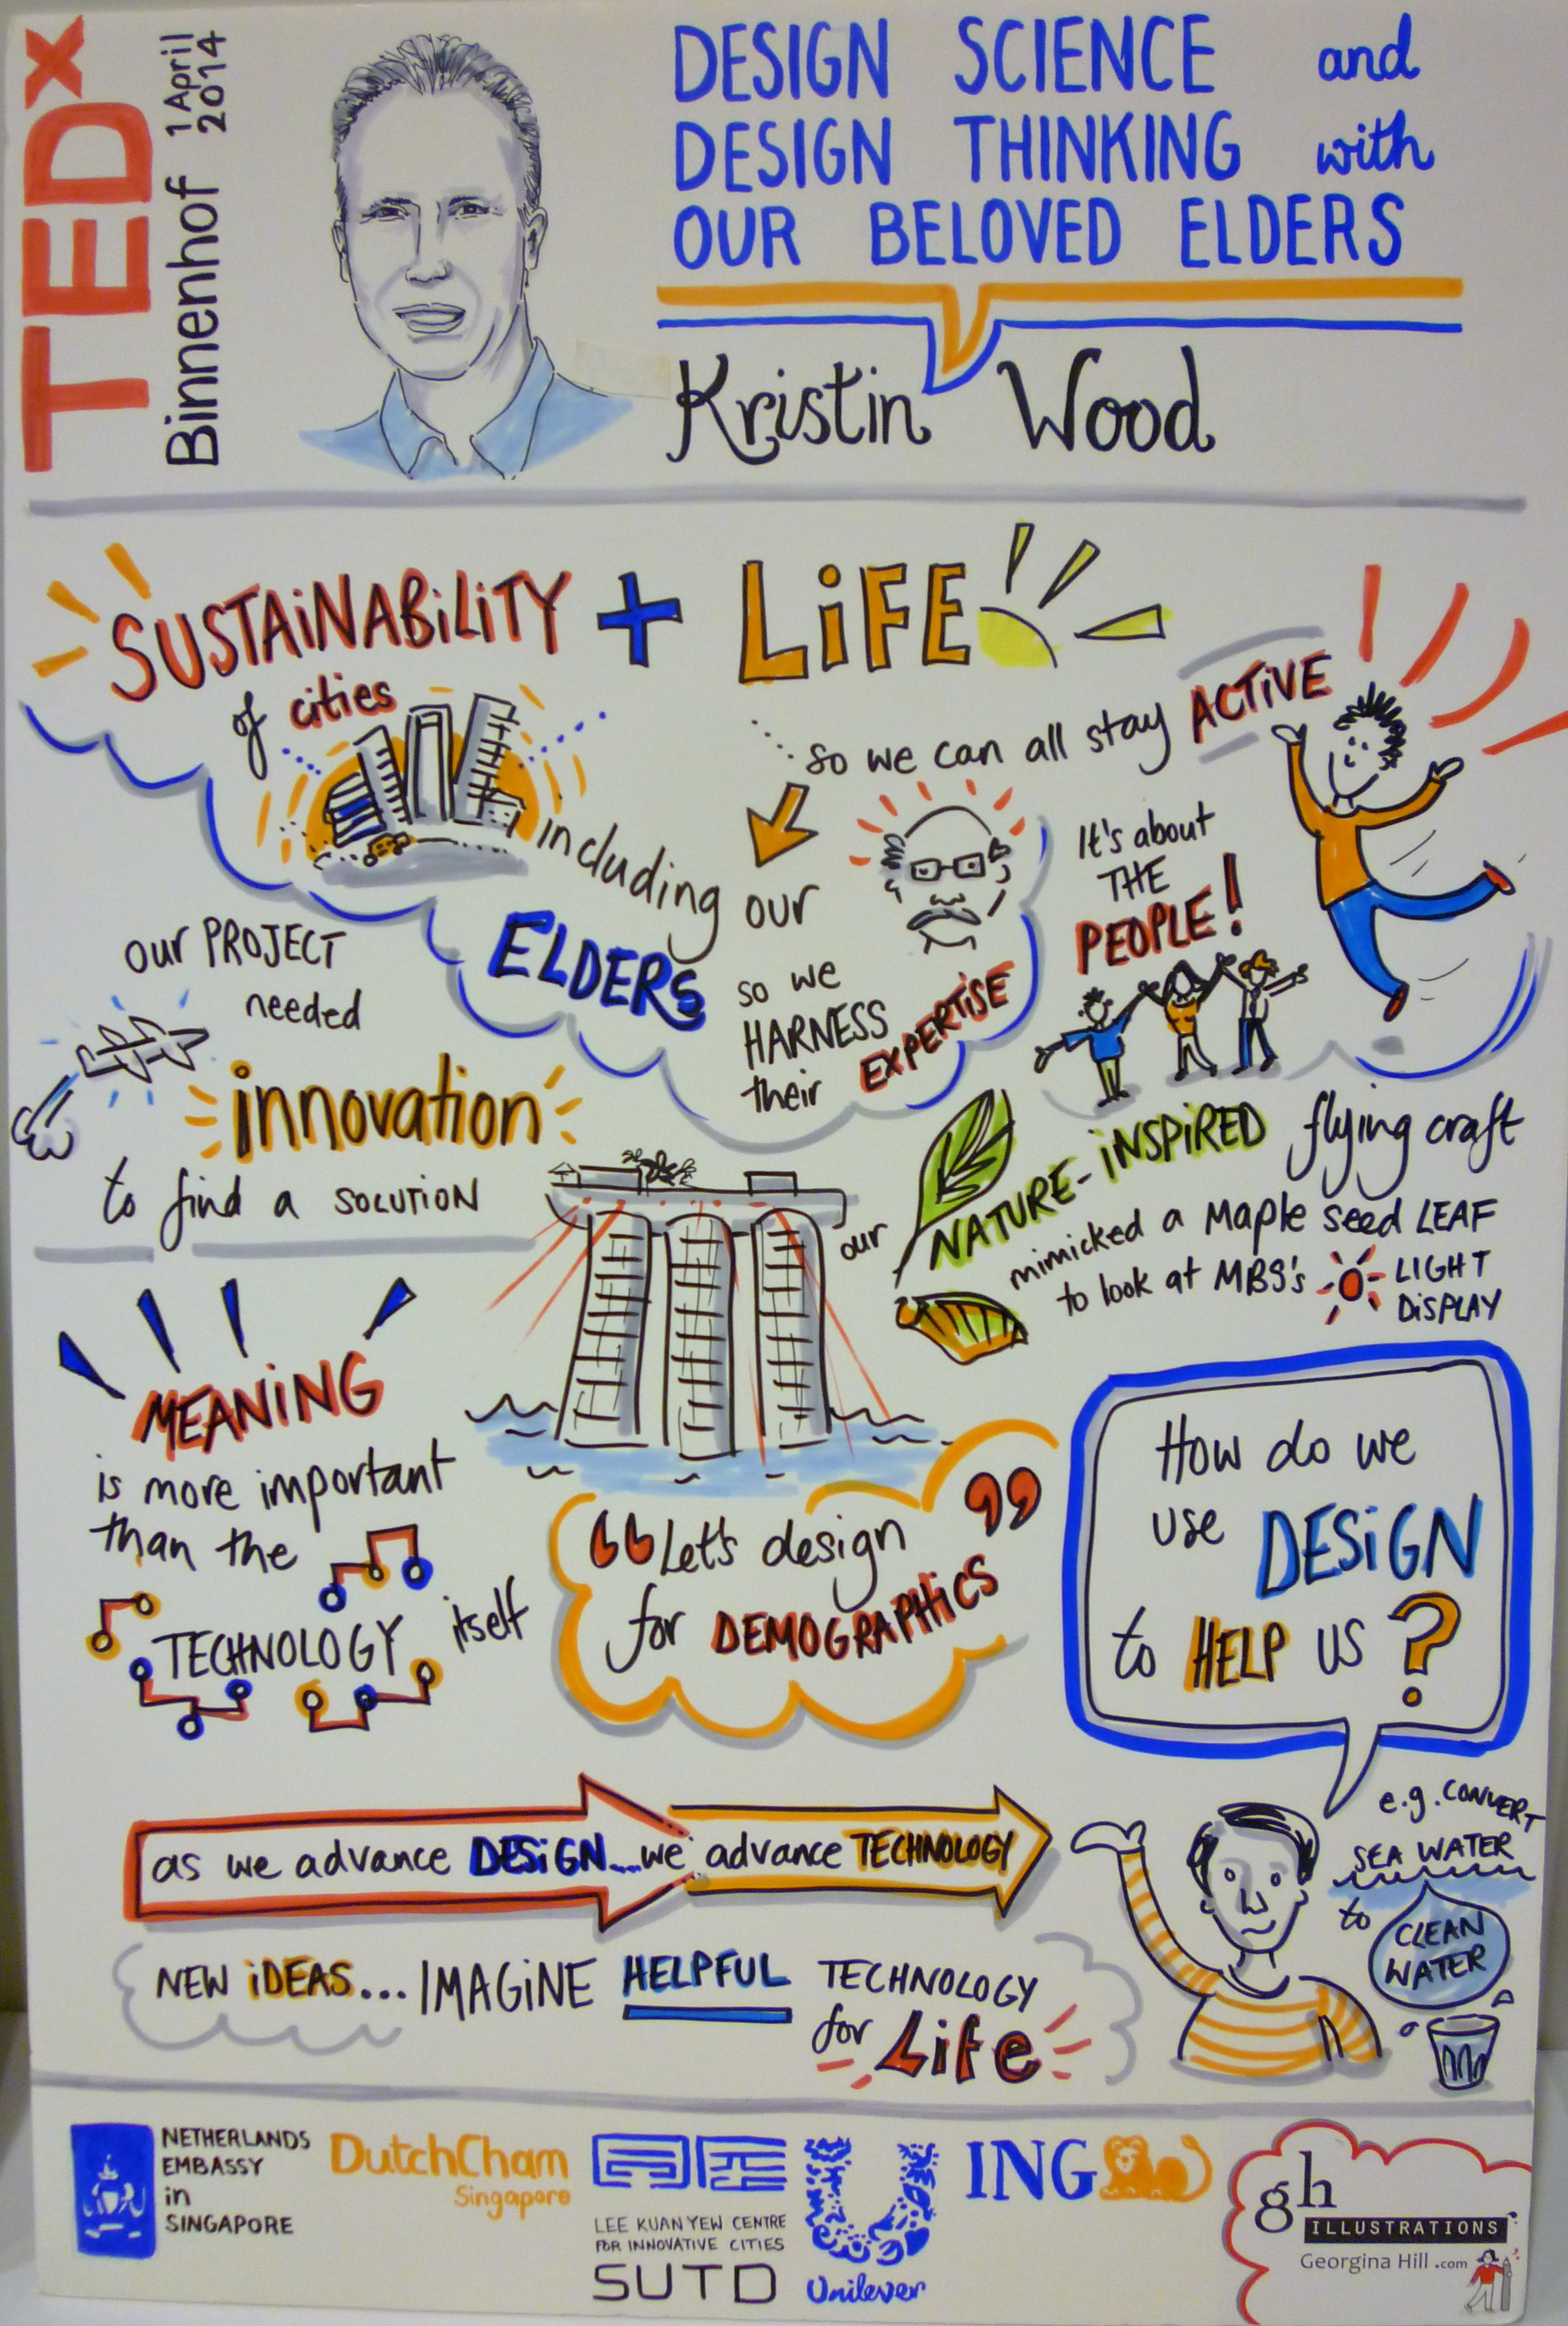 TEDx
Binnenhof
1 April
2014
DESIGN SCIENCE and
DESIGN THINKING with
OUR BELOVED ELDERS
Kristin Wood
SUSTAiNABiLiTY + LiFE
of cities
so we can all stay ACTiVE
including our
ELDERS
so we
HARNESS
their EXPERTiSE
It's about
THE
PEOPLE!
our PROJECT
needed
innovation
to find a SOLUTiON
our NATURE-iNSPiRED flying craft
mimicked a Maple seed LEAF
to look at MBS's LIGHT
DiSPLAY
MEANiNG
is more important
than the
TECHNOLOGY itself
“Let's design
for DEMOGRAPHiCS”
How do we
use DESiGN
to HELP US?
as we advance DESiGN....we advance TECHNOLOGY
e.g. CONVERT
SEA WATER
to
CLEAN
WATER
NEW iDEAS... IMAGiNE HELPFUL TECHNOLOGY
for Life
NETHERLANDS
EMBASSY
in
SINGAPORE
DutchCham
Singapore
LEE KUAN YEW CENTRE
FOR INNOVATIVE CITIES
SUTD
U
Unilever
ING
gh
ILLUSTRATIONS
Georgina Hill .com